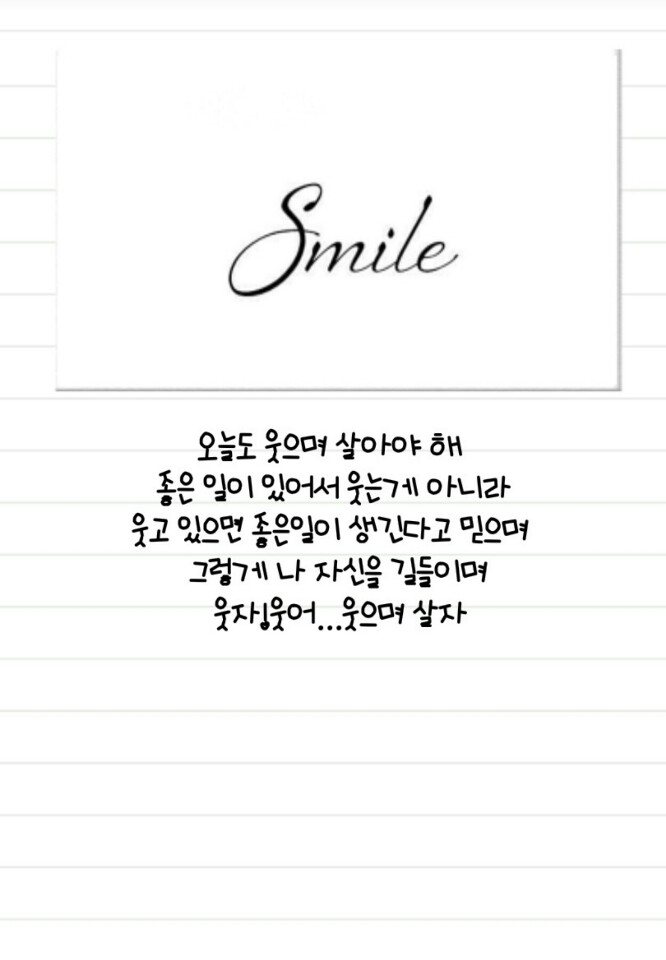 Smile
오늘도 웃으며 살아야 해
좋은 일이 있어서 웃는게 아니라
웃고 있으면 좋은일이 생긴다고 믿으며
그렇게 나 자신을 길들이며
웃자!웃어...웃으며 살자